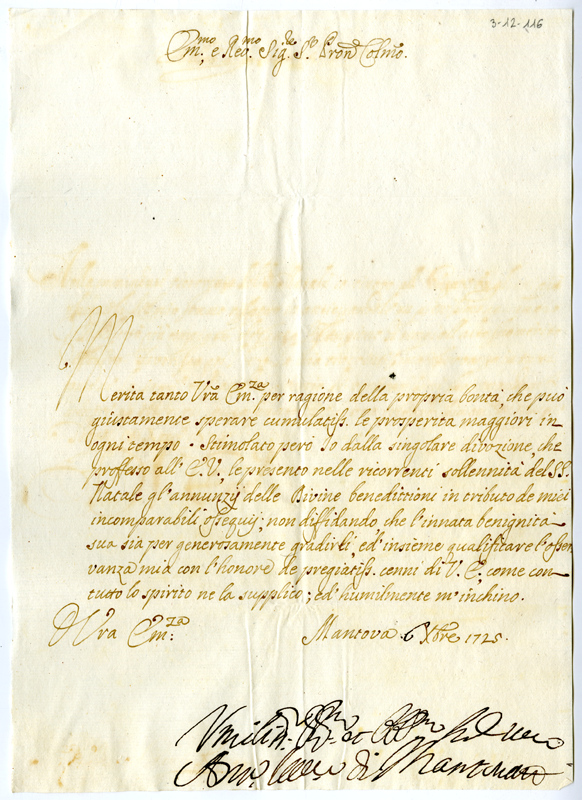 3-12-116
Em.mo e Rev.mo Sig.re S.r P.rone Colmo.
Merita tanto Vrã Em.za per ragione della propria bontà, che può
giustamente sperare cumulatiss. le prosperità maggiori in
ogni tempo. Stimolato però Io dalla singolare divozione, che
professo all' E.V., le presento nelle ricorrenti sollennità del SS.
Natale gl'annunzij delle Divine benedittioni in tributo de miei
incomparabili ossequij; non diffidando che l'innata benignità
sua sia per generosamente gradirli, ed' insieme qualificare l'osser
vanza mia con l'honore de pregiatiss. cenni di V. E., come con
tutto lo spirito ne la supplico; ed' humilmente m'inchino.
D Vra Em.za: Mantova 6 Xbre 1725.
Umiliss. et
di Mantova